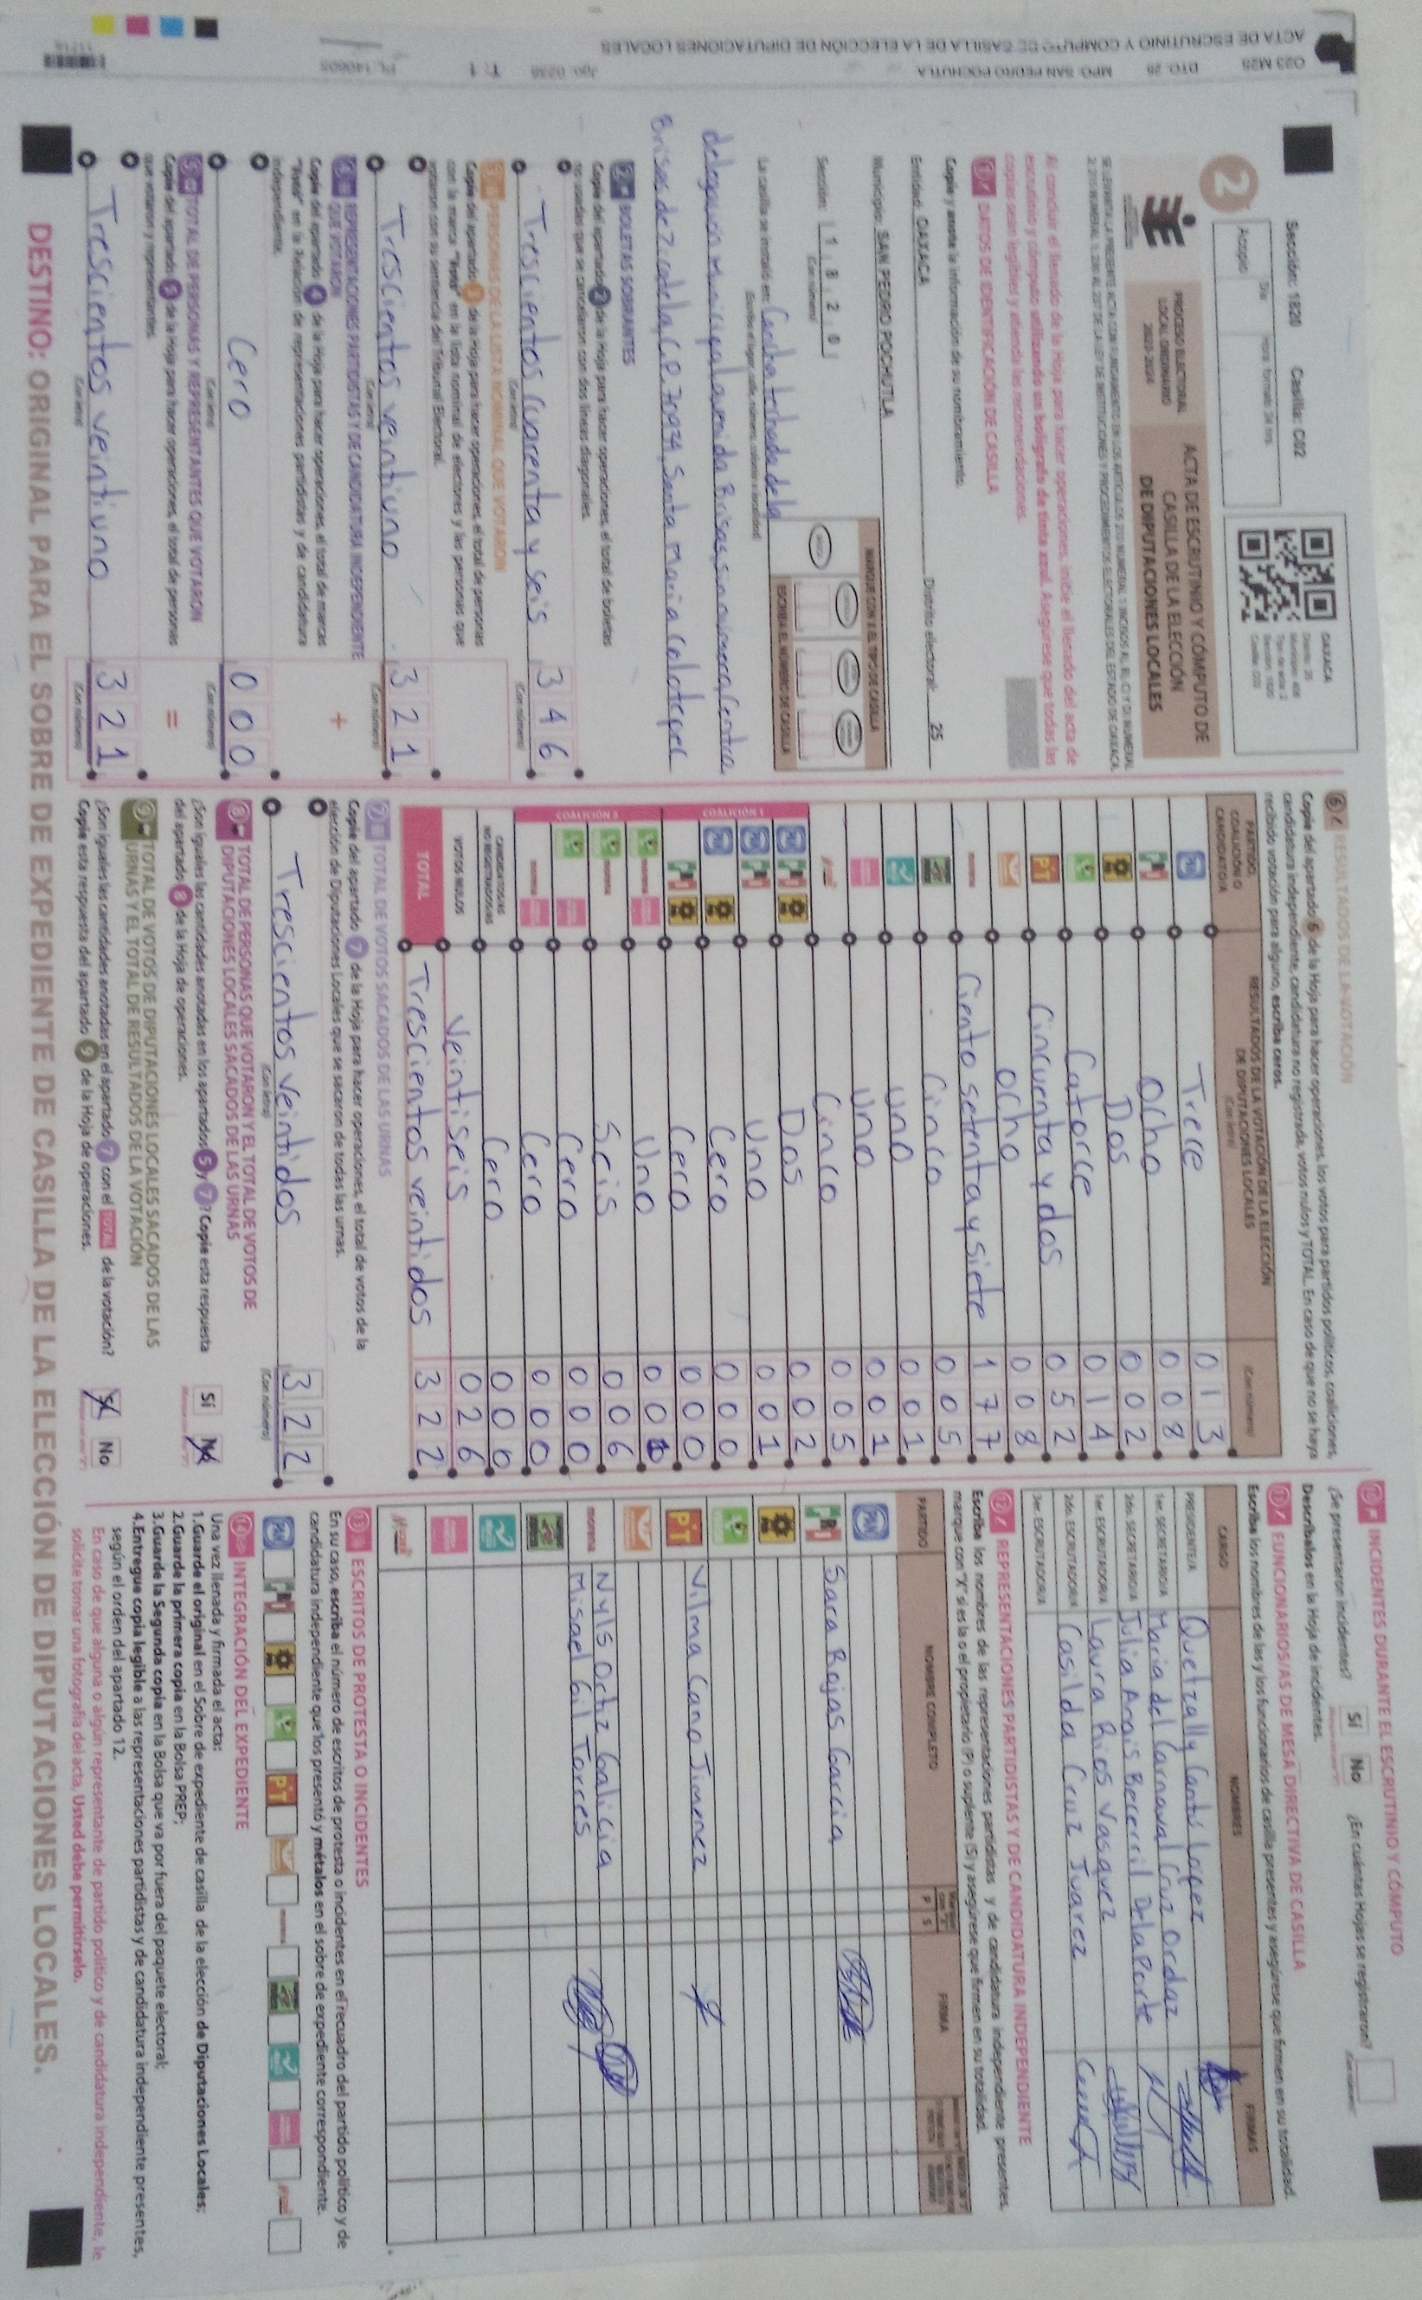 O23 M25 DTO. 25 MPO. SAN PEDRO POCHUTLA
ACTA DE ESCRUTINIO Y CÓMPUTO DE CASILLA DE LA ELECCIÓN DE DIPUTACIONES LOCALES
Sección: 1820 Casilla: C02
OAXACA
2
Acopio
Día
Hora formato 24 hrs
PROCESO ELECTORAL
LOCAL ORDINARIO
2023-2024
ACTA DE ESCRUTINIO Y CÓMPUTO DE
CASILLA DE LA ELECCIÓN
DE DIPUTACIONES LOCALES
Al concluir el llenado de la Hoja para hacer operaciones, inicie el llenado del acta de
escrutinio y cómputo utilizando un bolígrafo de tinta azul. Asegúrese que todas las
copias sean legibles y atienda las recomendaciones.
1 DATOS DE IDENTIFICACIÓN DE CASILLA
Copie y anote la información de su nombramiento.
Entidad: OAXACA Distrito electoral: 25
Municipio: SAN PEDRO POCHUTLA
Sección: 1 8 2 0
(Con número)
MARQUE CON X EL TIPO DE CASILLA
ESCRIBA EL NÚMERO DE CASILLA
La casilla se instaló en: Cancha techada de la
delegación Municipal avenida Brisas, sin número, Centro
Brisas de Zicatela, C.P. 70934, Santa Maria Colotepec
2 BOLETAS SOBRANTES
Copie del apartado 2 de la Hoja para hacer operaciones, el total de boletas
no usadas que se cancelaron con dos líneas diagonales.
Trescientos cuarenta y seis 3 4 6
(Con letra) (Con número)
3 PERSONAS DE LA LISTA NOMINAL QUE VOTARON
Copie del apartado 3 de la Hoja para hacer operaciones, el total de personas
con la marca "Votó" en la lista nominal de electores y las personas que
votaron con su sentencia del Tribunal Electoral.
Trescientos veintiuno 3 2 1
(Con letra) (Con número)
4 REPRESENTACIONES PARTIDISTAS Y DE CANDIDATURA INDEPENDIENTE
QUE VOTARON
+
Copie del apartado 4 de la Hoja para hacer operaciones, el total de marcas
"Votó" en la Relación de representaciones partidistas y de candidatura
independiente.
Cero 0 0 0
(Con letra) (Con número)
5 TOTAL DE PERSONAS Y REPRESENTANTES QUE VOTARON
=
Copie del apartado 5 de la Hoja para hacer operaciones, el total de personas
que votaron y representantes.
Trescientos veintiuno 3 2 1
(Con letra) (Con número)
6 RESULTADOS DE LA VOTACIÓN
Copie del apartado 6 de la Hoja para hacer operaciones, los votos para partidos políticos, coaliciones,
candidatura independiente, candidatura no registrada, votos nulos y TOTAL. En caso de que no se haya
recibido votación para alguno, escriba ceros.
PARTIDO, COALICIÓN O CANDIDATO/A
RESULTADOS DE LA VOTACIÓN DE LA ELECCIÓN
DE DIPUTACIONES LOCALES
(Con letra) (Con número)
PAN Trece 0 1 3
PRI Ocho 0 0 8
PRD Dos 0 0 2
Catorce 0 1 4
PT Cincuenta y dos 0 5 2
Ocho 0 0 8
morena Ciento setenta y siete 1 7 7
Cinco 0 0 5
Uno 0 0 1
Uno 0 0 1
Cinco 0 0 5
COALICIÓN 1
PAN PRI PRD Dos 0 0 2
PAN PRI Uno 0 0 1
PAN PRD Cero 0 0 0
PRI PRD Cero 0 0 0
Uno 0 0
Seis 0 0 6
Cero 0 0 0
Cero 0 0 0
CANDIDATOS/AS
NO REGISTRADOS/AS Cero 0 0 0
VOTOS NULOS Veintiseis 0 2 6
TOTAL Trescientos veintidos 3 2 2
7 TOTAL DE VOTOS SACADOS DE LAS URNAS
Copie del apartado 7 de la Hoja para hacer operaciones, el total de votos de la
elección de Diputaciones Locales que se sacaron de todas las urnas.
Trescientos Veintidos 3 2 2
(Con letra) (Con número)
8 TOTAL DE PERSONAS QUE VOTARON Y EL TOTAL DE VOTOS DE
DIPUTACIONES LOCALES SACADOS DE LAS URNAS
¿Son iguales las cantidades anotadas en los apartados 5 y 7? Copie esta respuesta
del apartado 8 de la Hoja de operaciones.
Sí No
9 TOTAL DE VOTOS DE DIPUTACIONES LOCALES SACADOS DE LAS
URNAS Y EL TOTAL DE RESULTADOS DE LA VOTACIÓN
¿Son iguales las cantidades anotadas en el apartado 7 con el TOTAL de la votación?
Copie esta respuesta del apartado 9 de la Hoja de operaciones.
Sí No
INCIDENTES DURANTE EL ESCRUTINIO Y CÓMPUTO
¿Se presentaron incidentes? Sí No ¿En cuántas Hojas se registraron?
Descríbalos en la Hoja de incidentes.
11 FUNCIONARIOS/AS DE MESA DIRECTIVA DE CASILLA
Escriba los nombres de las y los funcionarios de casilla presentes y asegúrese que firmen en su totalidad.
CARGO NOMBRES FIRMAS
PRESIDENTE/A Quetzally Cantú López
1er. SECRETARIO/A Maria del Carnaval Cruz Ordaz
2do. SECRETARIO/A Julia Anais Becerril De la Parte
1er. ESCRUTADOR/A Laura Rios Vasquez
2do. ESCRUTADOR/A Casilda Cruz Juarez
3er. ESCRUTADOR/A
12 REPRESENTACIONES PARTIDISTAS Y DE CANDIDATURA INDEPENDIENTE
Escriba los nombres de las representaciones partidistas y de candidatura independiente presentes,
marque con "X" si es la o el propietario (P) o suplente (S) y asegúrese que firmen en su totalidad.
PARTIDO NOMBRE COMPLETO P S FIRMA
PAN
PRI Sara Rojas Garcia
PRD
PT Vilma Cano Jimenez
morena Nyls Ortiz Galicia
Misael Gil Torres
13 ESCRITOS DE PROTESTA O INCIDENTES
En su caso, escriba el número de escritos de protesta o incidentes en el recuadro del partido político y de
candidatura independiente que los presentó y métalos en el sobre de expediente correspondiente.
14 INTEGRACIÓN DEL EXPEDIENTE
Una vez llenada y firmada el acta:
1.Guarde el original en el Sobre de expediente de casilla de la elección de Diputaciones Locales;
2.Guarde la primera copia en la Bolsa PREP;
3.Guarde la Segunda copia en la Bolsa que va por fuera del paquete electoral;
4.Entregue copia legible a las representaciones partidistas y de candidatura independiente presentes,
según el orden del apartado 12.
En caso de que alguna o algún representante de partido político y de candidatura independiente, le
solicite tomar una fotografía del acta, Usted debe permitírselo.
DESTINO: ORIGINAL PARA EL SOBRE DE EXPEDIENTE DE CASILLA DE LA ELECCIÓN DE DIPUTACIONES LOCALES.